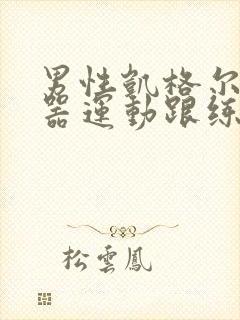 男性凱格尔
器運動跟练
松雲鳳